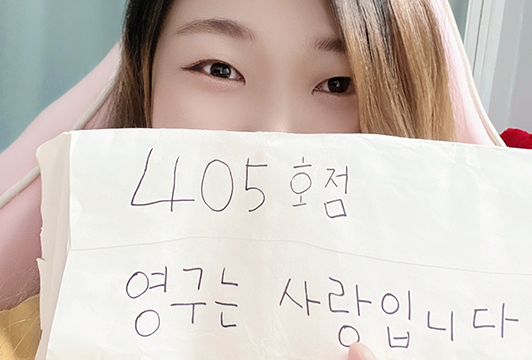 405호점
영구는 사랑입니다